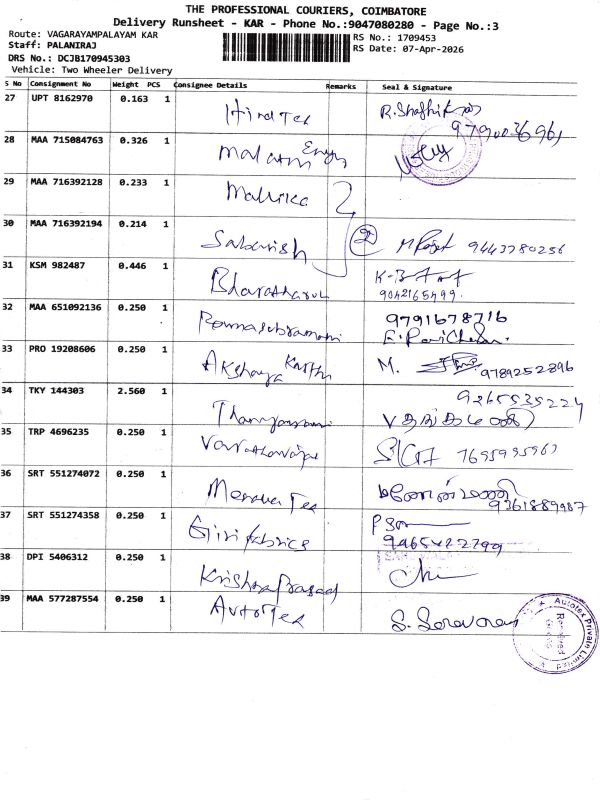 THE PROFESSIONAL COURIERS, COIMBATORE
Delivery Runsheet - KAR - Phone No.:9047080280 - Page No.:3
Route: VAGARAYAMPALAYAM KAR
RS No.: 1709453
Staff: PALANIRAJ
RS Date: 07-Apr-2026
DRS No.: DCJB170945303
Vehicle: Two Wheeler Delivery
S No Consignment No Weight PCS Consignee Details Remarks Seal & Signature
27 UPT 8162970 0.163 1 Hind Tex
9790036961
28 MAA 715084763 0.326 1
29 MAA 716392128 0.233 1 Mallika
30 MAA 716392194 0.214 1 Sabarish 2 9443780256
31 KSM 982487 0.446 1
9042165499
32 MAA 651092136 0.250 1 9791678716
33 PRO 19208606 0.250 1 Akshaya M. 9789252896
34 TKY 144303 2.560 1 9365535224
35 TRP 4696235 0.250 1
36 SRT 551274072 0.250 1 9361889987
37 SRT 551274358 0.250 1 Giri fabrics
9965422799
38 DPI 5406312 0.250 1 Krishna Prasad
39 MAA 577287554 0.250 1 Auto Tex S. Saravanan
Autotex Private Limited
Received
Goods